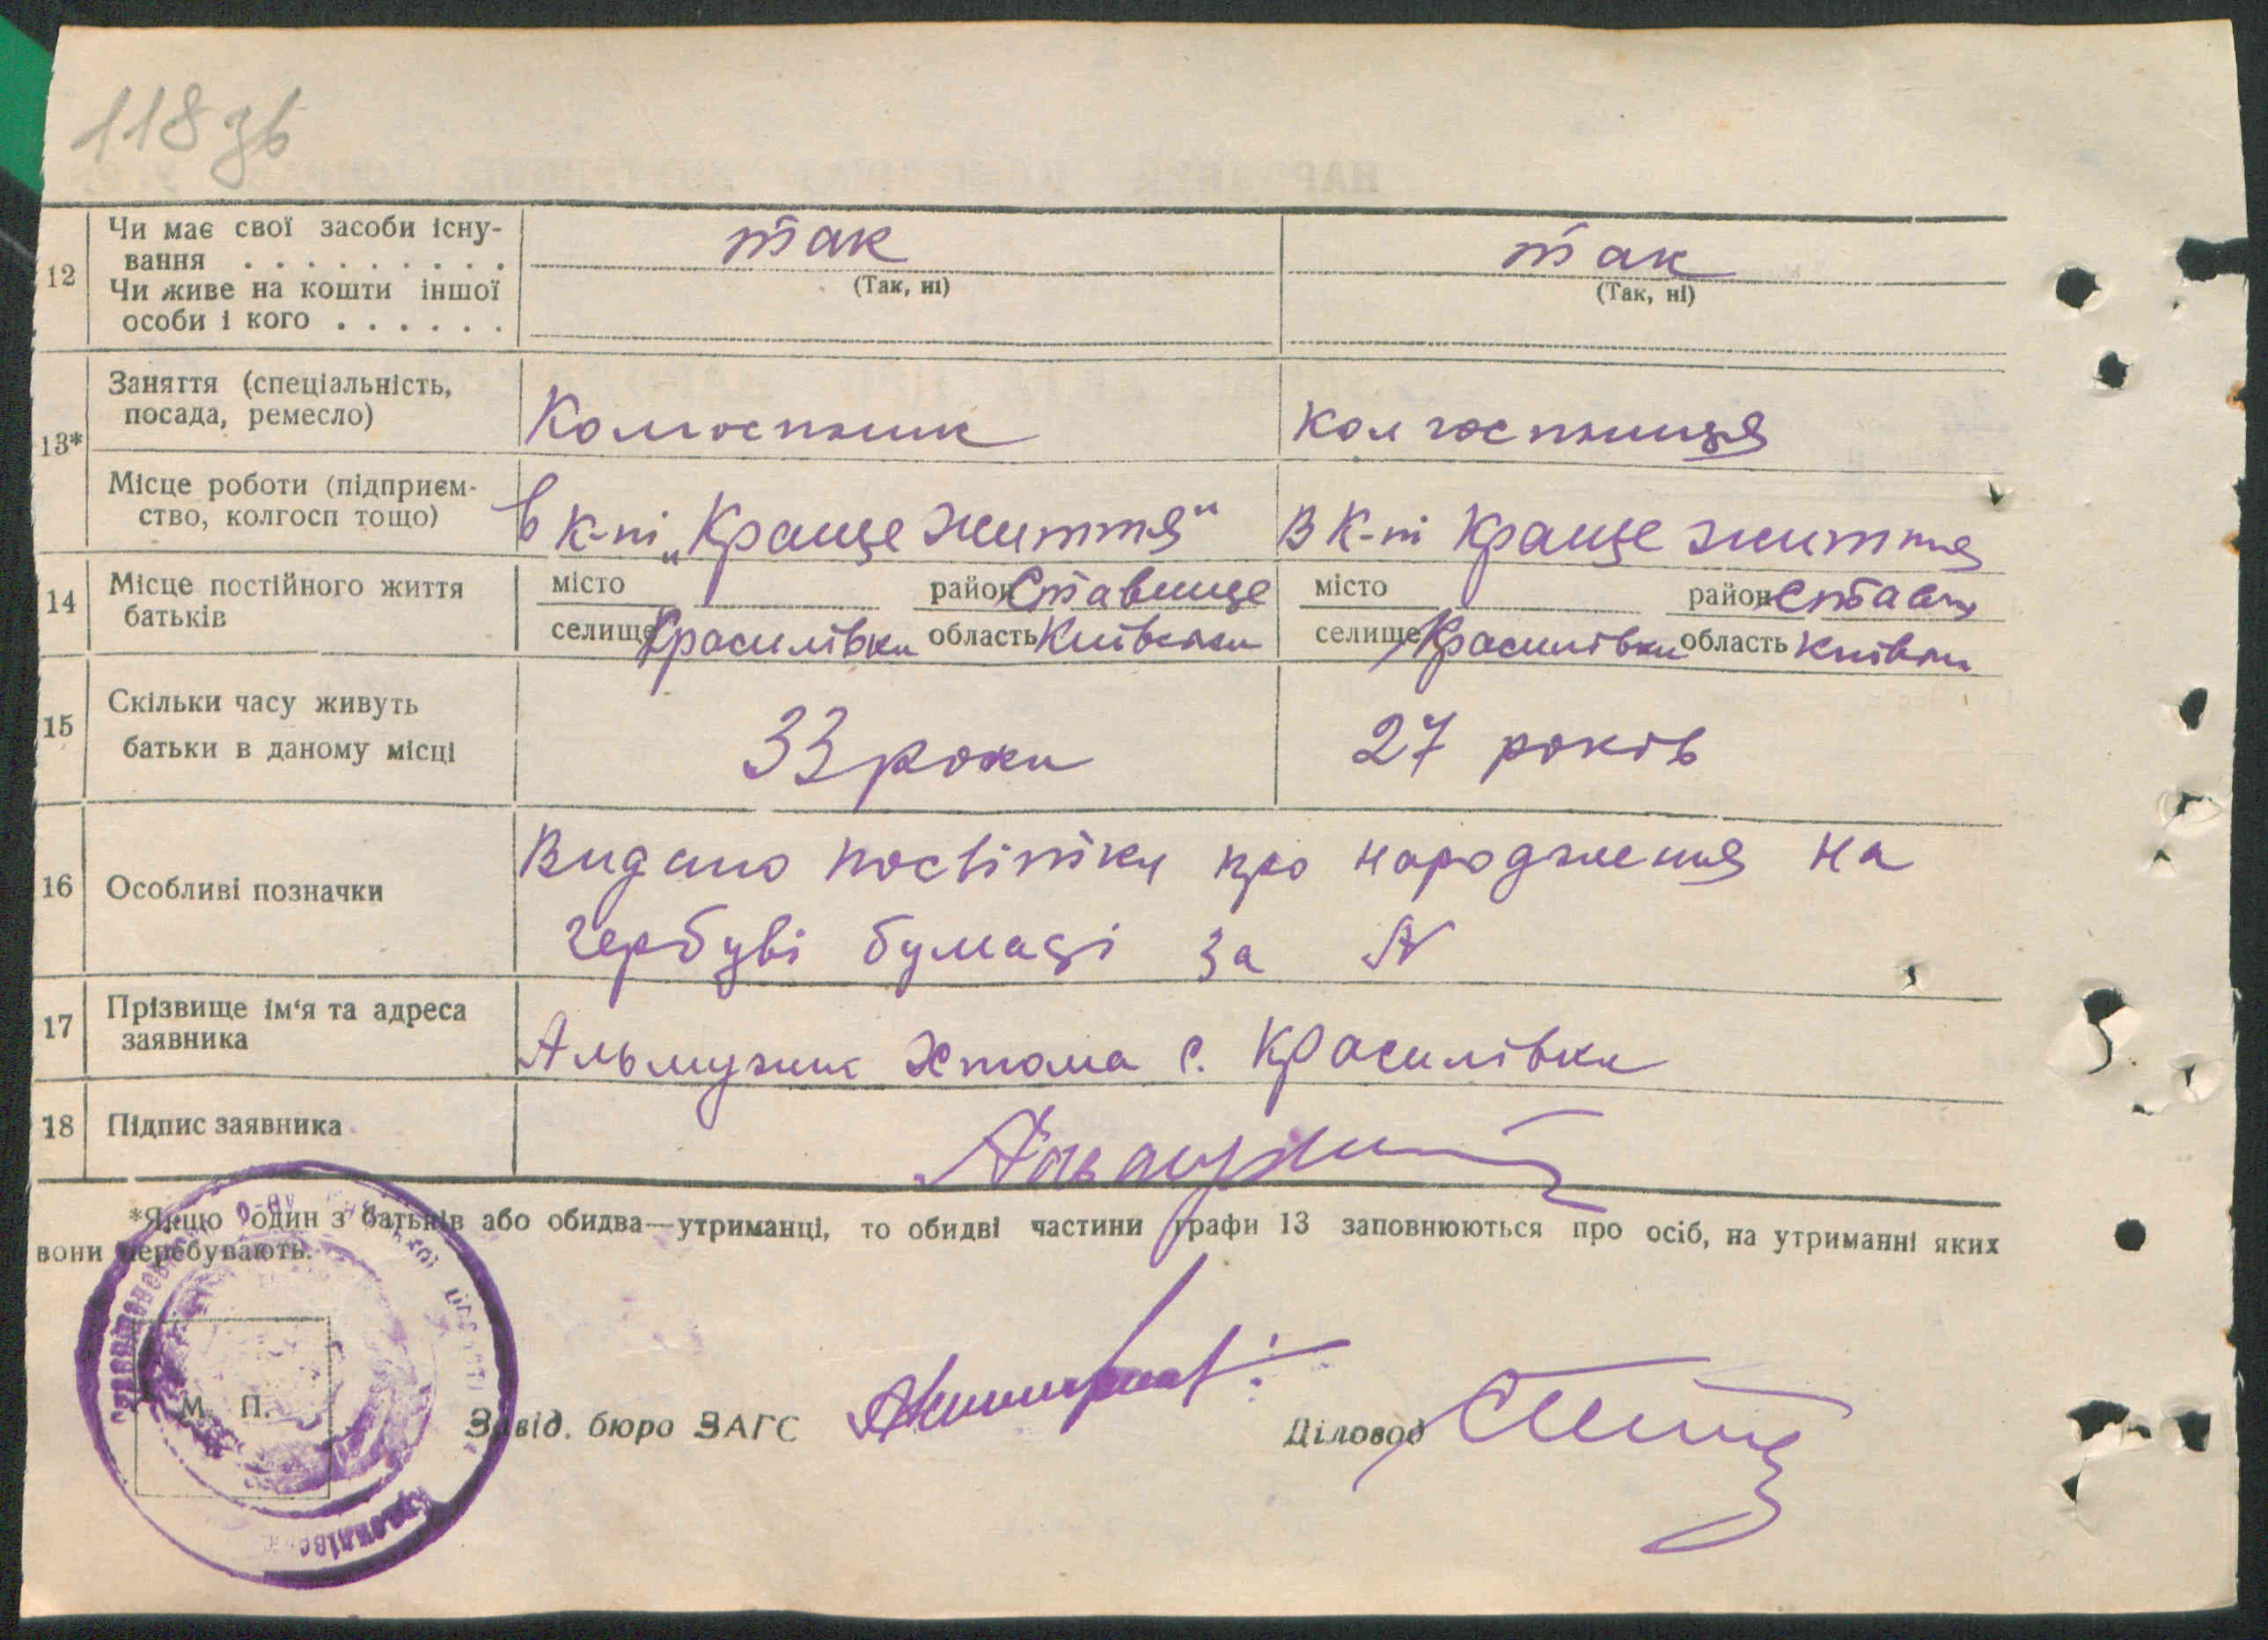 118 зв
12 Чи має свої засоби існу- так так
вання . . . . . . . . . (Так, ні) (Так, ні)
Чи живе на кошти іншої
особи і кого . . . . . .
13* Заняття (спеціальність,
посада, ремесло) Колгоспник колгоспниця
Місце роботи (підприєм-
ство, колгосп тощо) в к-пі „Краще життя" в к-пі Краще життя
14 Місце постійного життя місто район Ставище місто район Ставищ
батьків селище Красилівка область Київська селище Красилівка область Київськ
15 Скільки часу живуть
батьки в даному місці 33 роки 27 років
Видано посвітку про народження на
16 Особливі позначки
гербуві бумазі за N
17 Прізвище ім'я та адреса
заявника Альмужник с. Красилівка
18 Підпис заявника
*Якщо один з батьків або обидва—утриманці, то обидві частини графи 13 заповнюються про осіб, на утриманні яких
вони перебувають.
М. П.
Завід. бюро ЗАГС Діловод